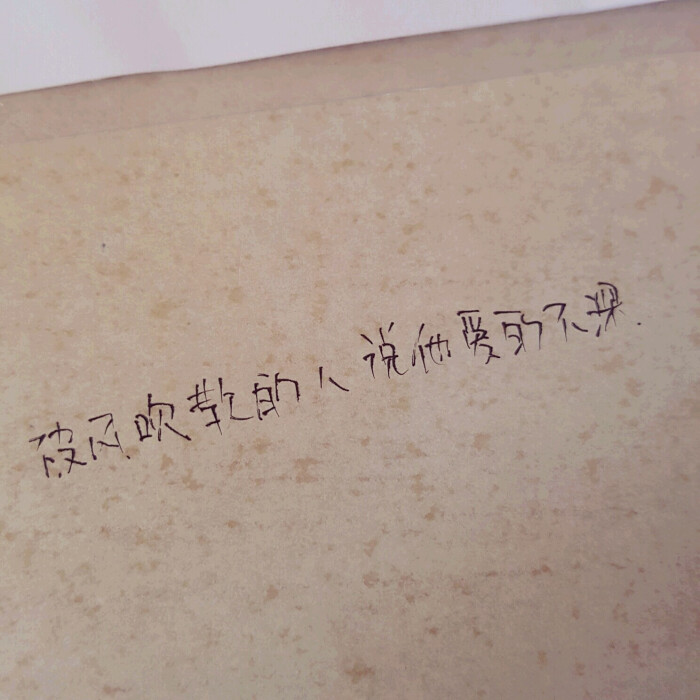 被风吹散的人说他爱的不深.